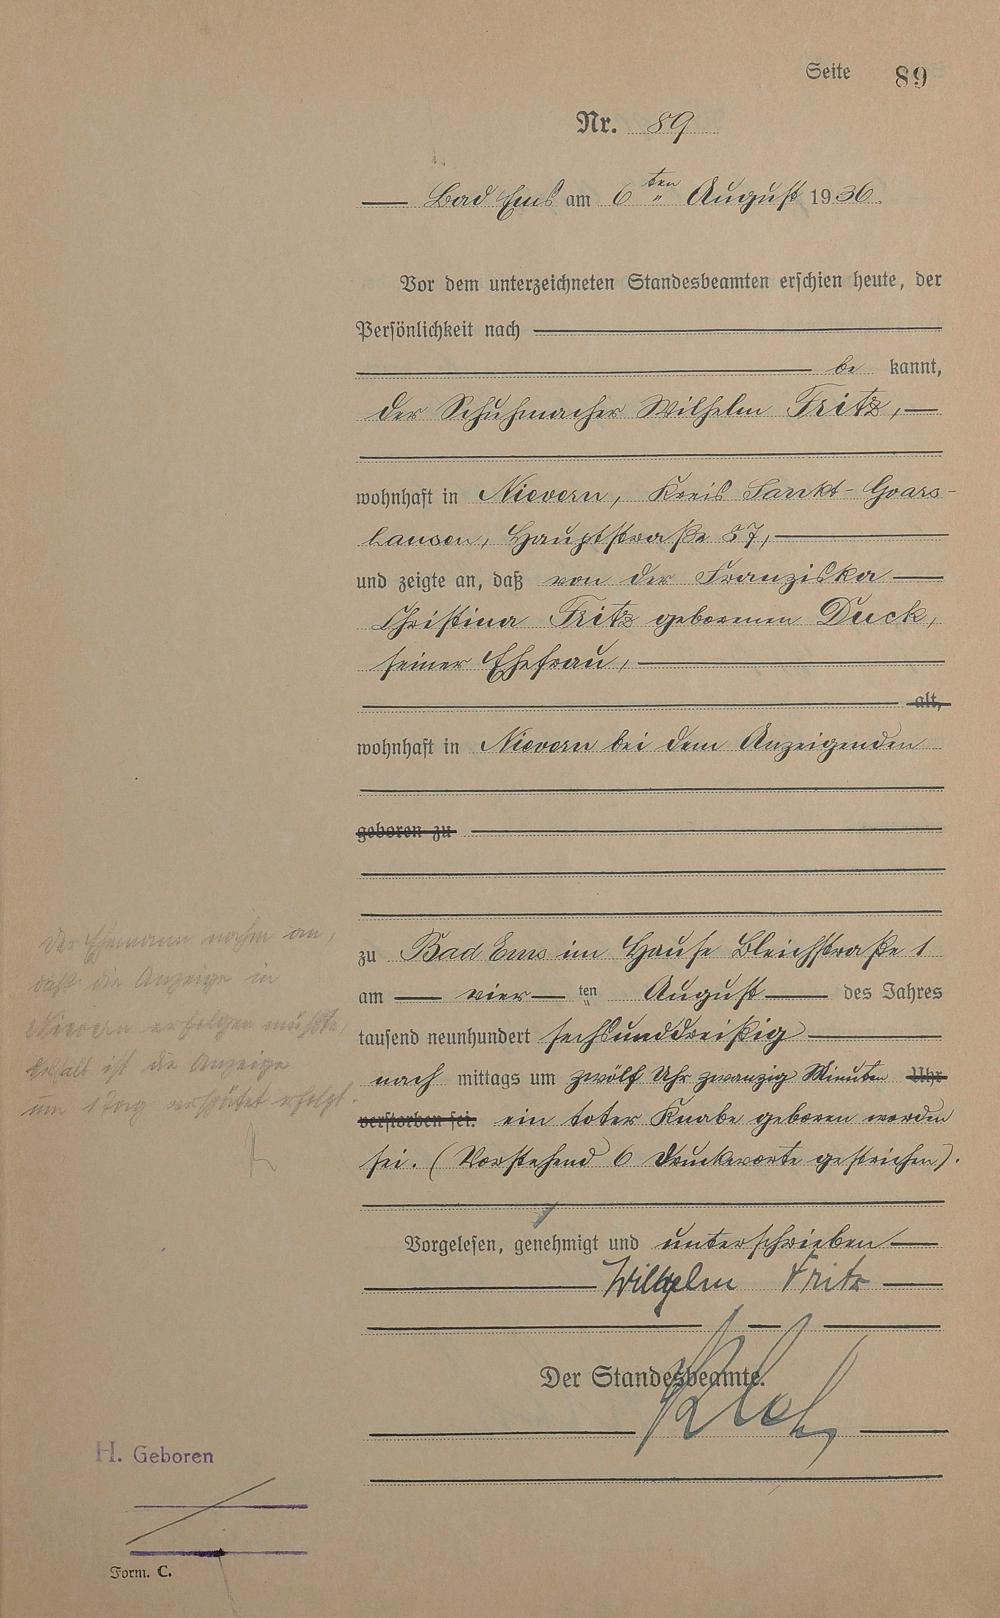 Seite 89
Nr. 89
Bad Ems am 6ten August 1936.
Vor dem unterzeichneten Standesbeamten erschien heute, der
Persönlichkeit nach
be kannt,
der Schuhmacher Wilhelm Fritz,
wohnhaft in Nievern, Kreis Sankt-Goars-
hausen, Hauptstraße 57,
und zeigte an, daß von der Franziska
Christina Fritz geborenen Duck,
seiner Ehefrau,
alt,
wohnhaft in Nievern bei dem Anzeigenden
geboren zu
zu Bad Ems im Hause Bleichstraße 1
am vier ten August des Jahres
tausend neunhundert sechsunddreißig
nach mittags um zwölf Uhr zwanzig Minuten Uhr
verstorben sei. ein toter Knabe geboren worden
sei. (Vorstehend 6 Druckworte gestrichen).
Der Ehemann nahm an,
daß die Anzeige in
Nievern erfolgen müßte,
deshalb ist die Anzeige
um 1 Tag verspätet erfolgt.
Vorgelesen, genehmigt und unterschrieben
Wilhelm Fritz
Der Standesbeamte.
H. Geboren
Form. C.